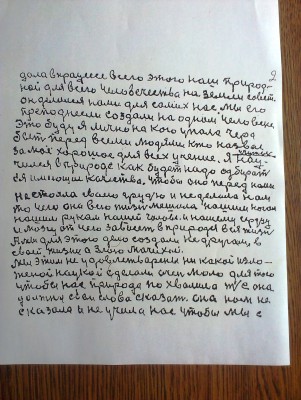 2
дала в процессе всего этого наш природ-
ной для всего человечества на земли совет.
он делался нами для самих нас мы его
преподнесли создали на одном человеке
Это буду я лично на кого упала черга
быть перед всеми людями кто назвал
за моё хорошое для всех учение. Я Учитель нау
чился в природе как будет надо одбират
ся имеющие качества, чтобы оно перед нами
настояла своею грудью и не делила нам
то чего она всю жизнь мешила нашим ногам
нашим рукам нашей голове. и нашему серцу
и мозгу от чего зависет в природе вся жизнь
Я мы для этого дело создали не другом, в
своей жизни а злою мачехой.
Мы этим не удовлетварены ни какой изло-
женой наукой сделали очен мало для того
чтобы нас природа по хвалила
должну свои слова сказат. она нам не
сказала и не учила нас чтобы мы с